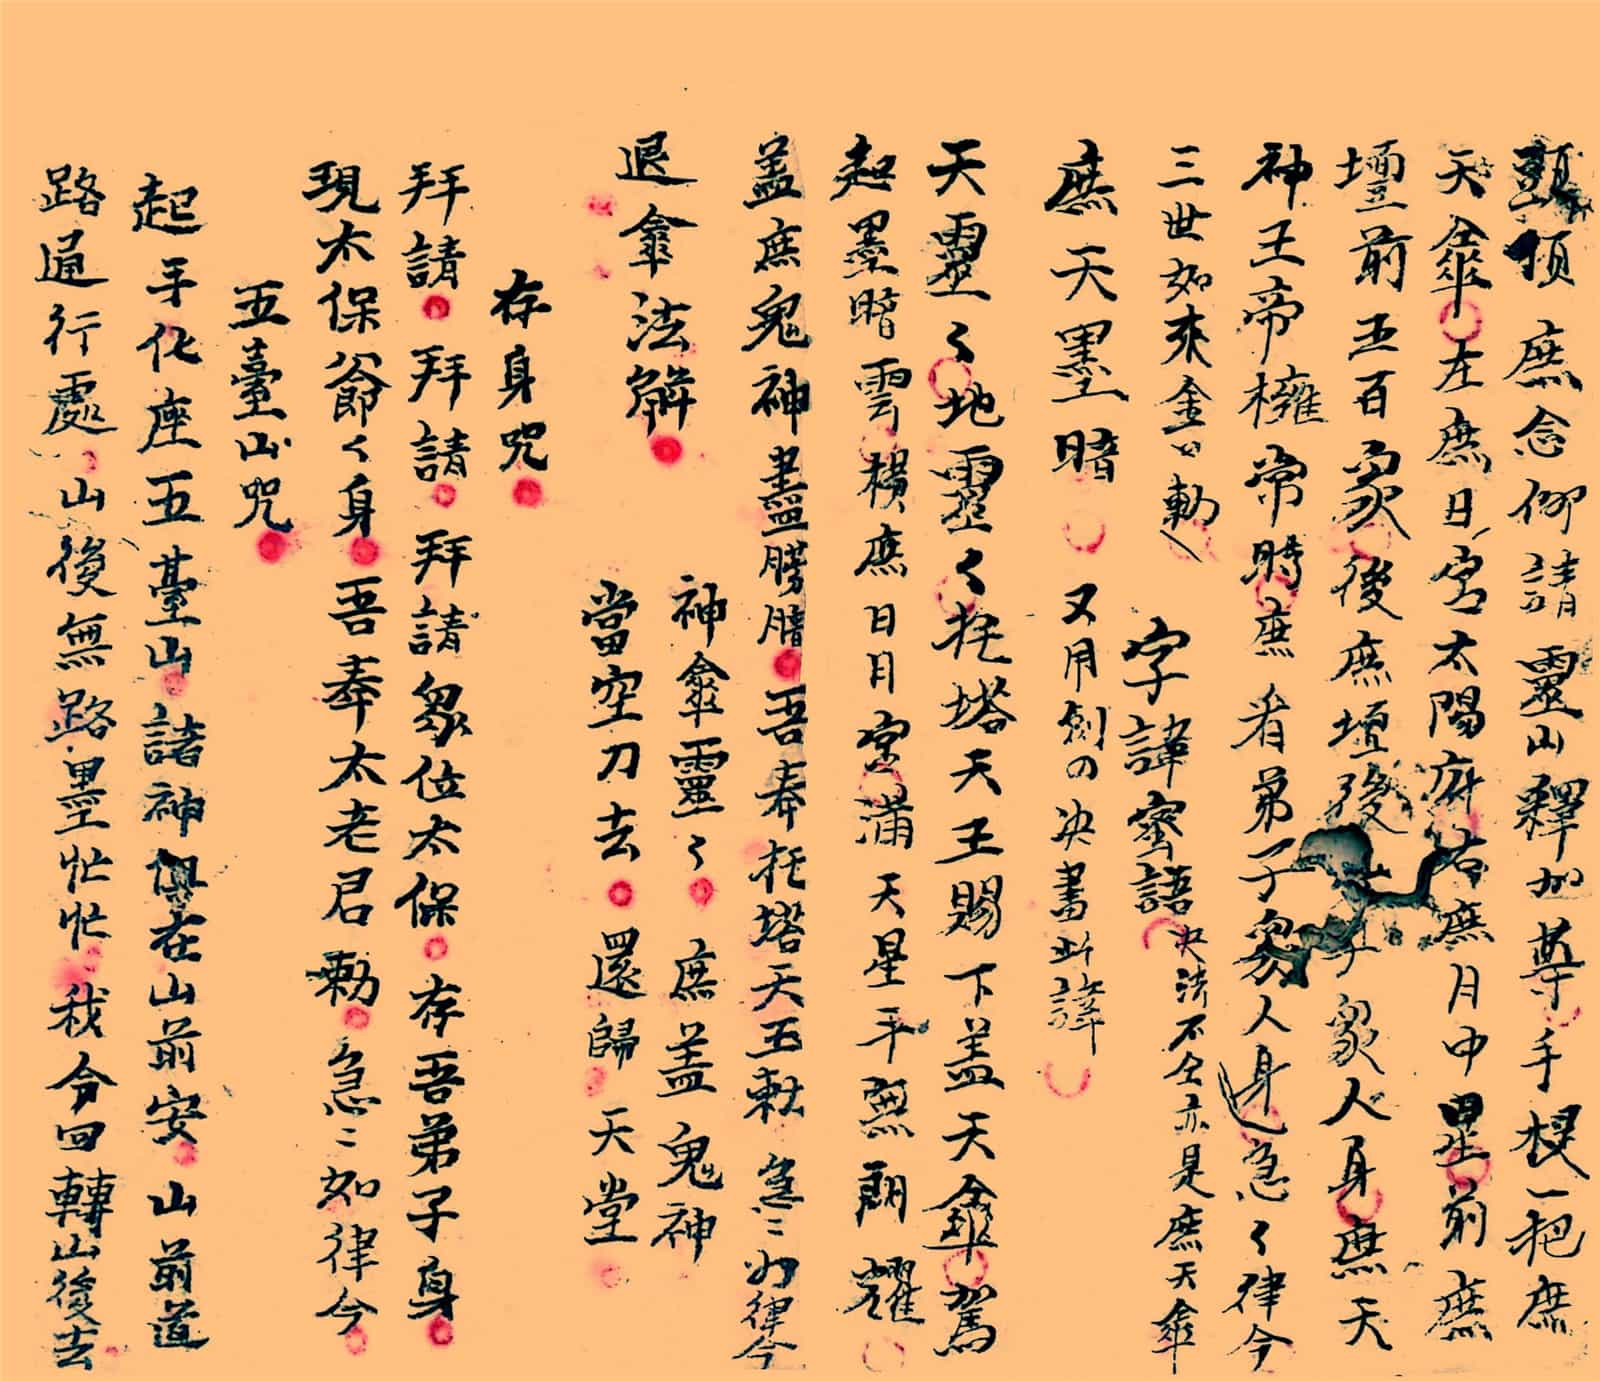 頭頂庶念仰請靈山釋加尊手梘一把庶
天傘左庶日宮太陽府右庶月中星前庶
壇前五百眾後庶壇後 眾人身庶天
神王帝權常時庶看弟子眾人身急〻律令
三世如來金口勅
字諱密語決法不全亦是庶天傘
庶天墨暗又用劍の决書斬諱
天靈〻地靈〻托塔天王賜下盖天傘駕
起墨暗雲橫庶日月空滿天星斗無朗耀
盖庶鬼神盡朦暗吾奉托塔天王勅急〻如律令
退傘法解
神傘靈〻庶盖鬼神
當空刀去還歸天堂
存身咒
拜請拜請拜請眾位太保存吾弟子身
現太保爺〻身吾奉太老君勅急〻如律令
五臺山咒
起手化座五臺山諸神俱在山前安山前道
路通行處山後無路墨忙忙我今回轉山後去